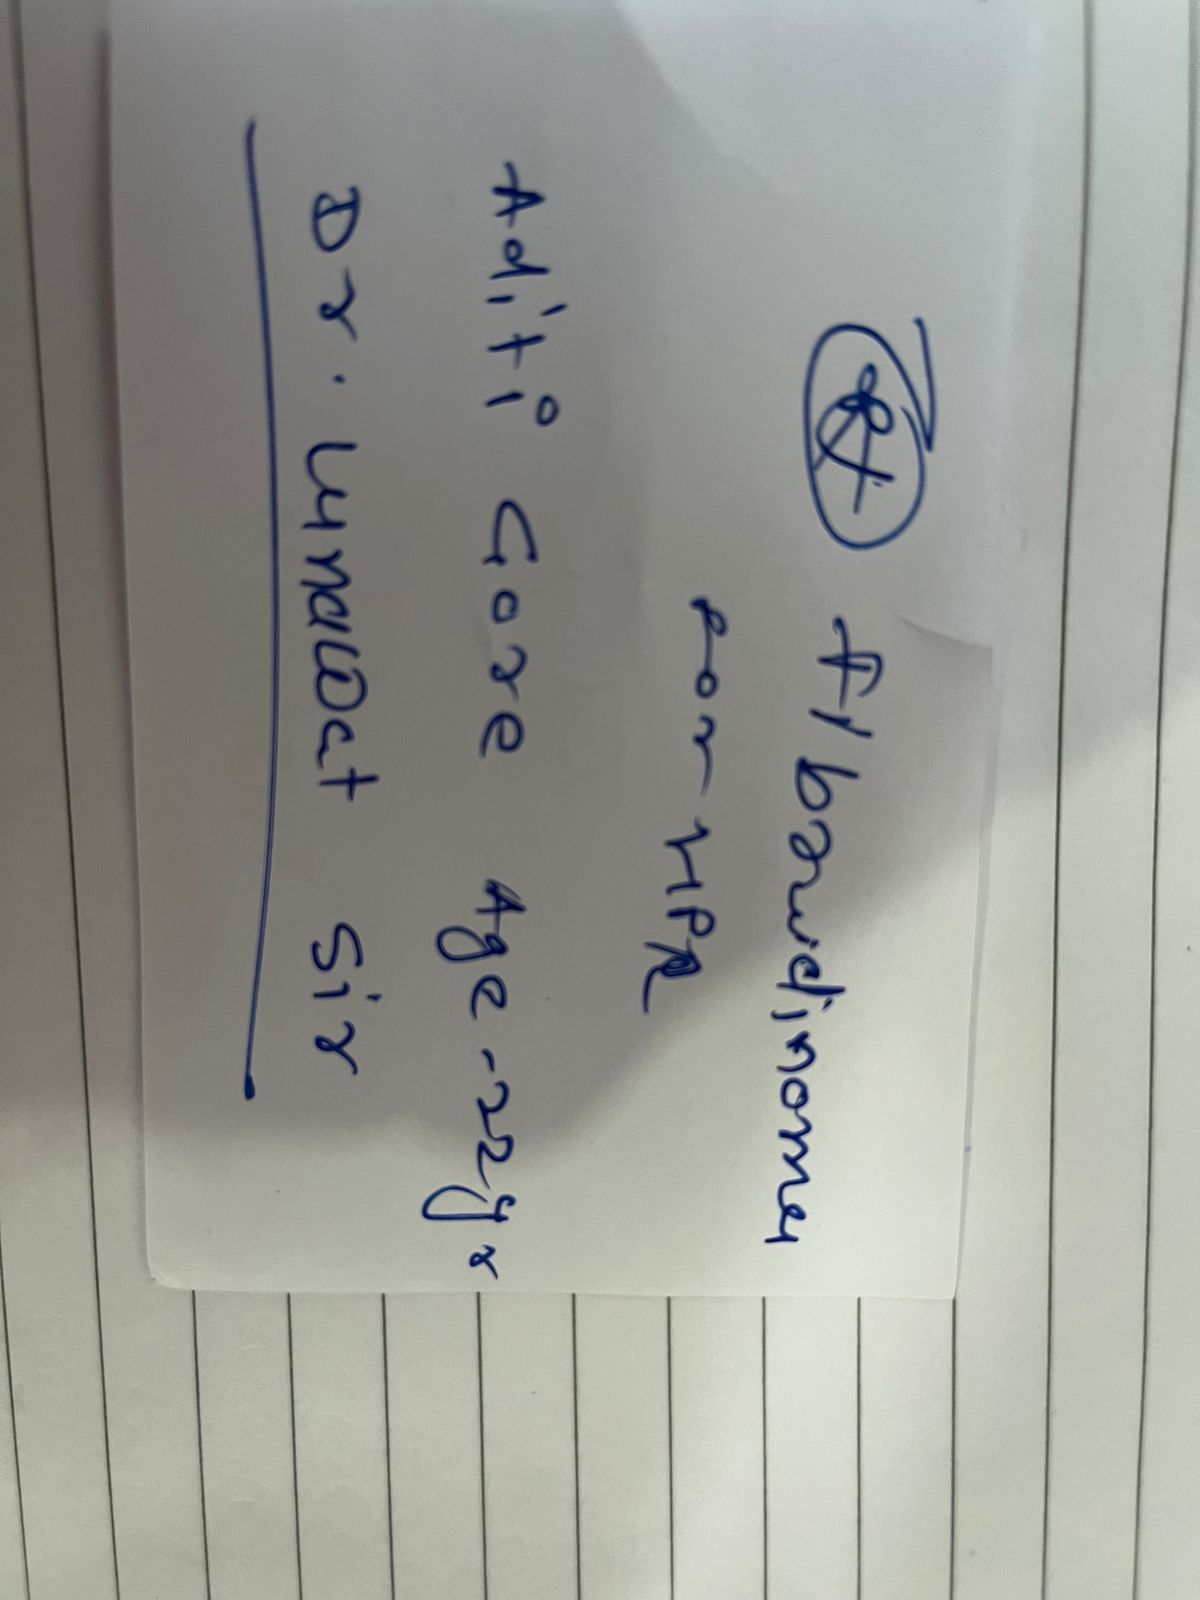 Rt fibroadinoma
for HPR
Aditi Gore Age - 22yr
Dr. Lunawat Sir